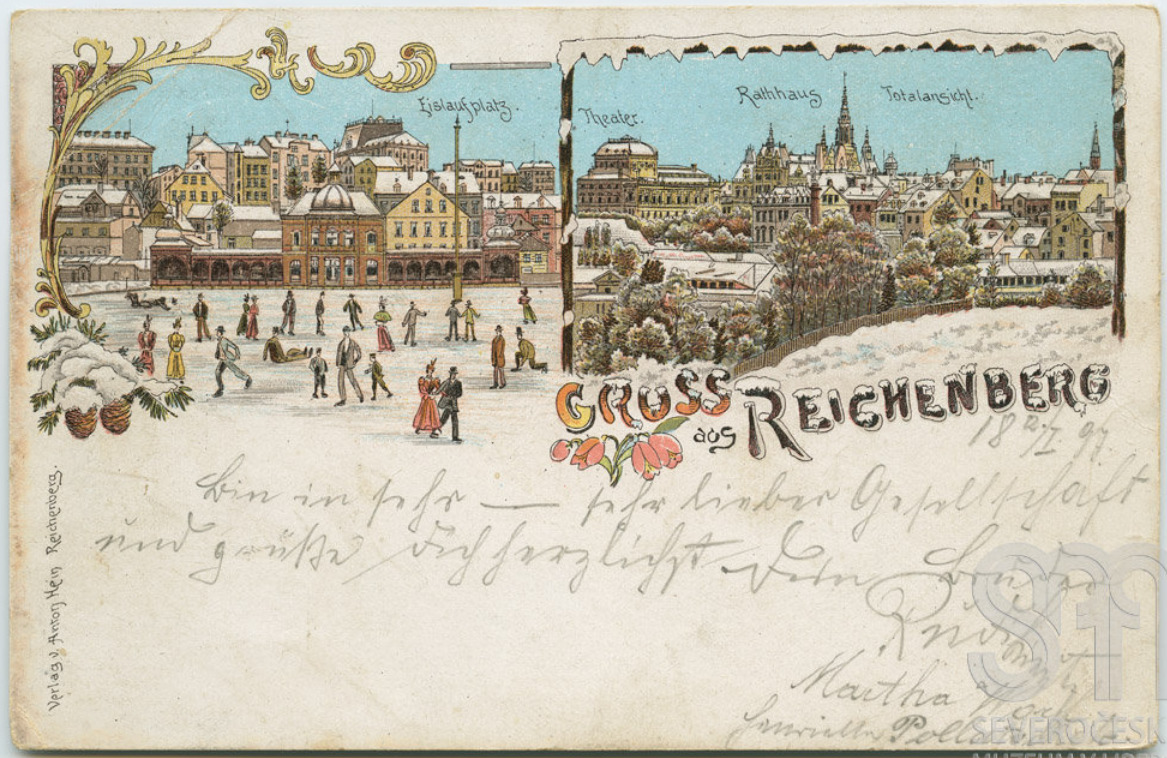 Eislaufplatz.
Theater.
Rathhaus
Totalansicht.
GRUSS
aus REICHENBERG
18 2/I 97
Bin in sehr — sehr lieber Gesellschaft
und grüße Dich herzlichst Dein Bruder
Rudi
Martha
Henriette
Verlag v. Anton Hein Reichenberg.
SEVEROČESK
MUZEUM V LIBER